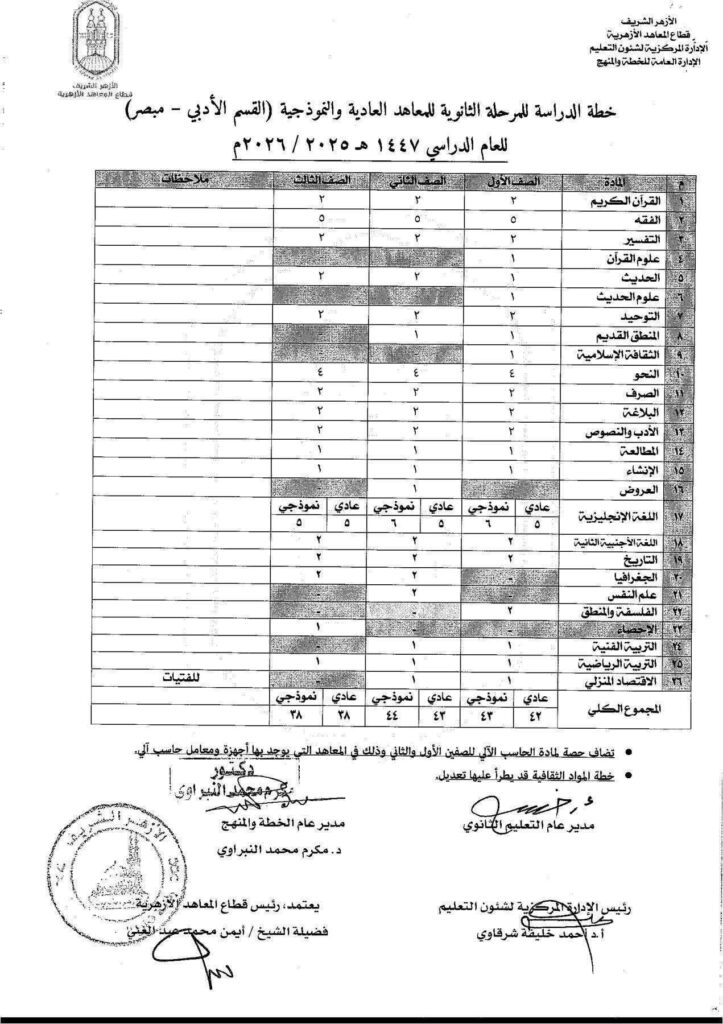 الأزهر الشريف
قطاع المعاهد الأزهرية
الإدارة المركزية لشئون التعليم
الإدارة العامة للخطة والمنهج
الأزهر الشريف
قطاع المعاهد الأزهرية
خطة الدراسة للمرحلة الثانوية للمعاهد العادية والنموذجية (القسم الأدبي - مبصر)
للعام الدراسي ١٤٤٧ هـ ٢٠٢٥ / ٢٠٢٦م
م المادة الصف الأول الصف الثاني الصف الثالث ملاحظات
١ القرآن الكريم ٢ ٢ ٢
٢ الفقه ٥ ٥ ٥
٣ التفسير ٢ ٢ ٢
٤ علوم القرآن ١ - -
٥ الحديث ١ ٢ ٢
٦ علوم الحديث ١ - -
٧ التوحيد ٢ ٢ ٢
٨ المنطق القديم ١ ١ -
٩ الثقافة الإسلامية ١ - -
١٠ النحو ٤ ٤ ٤
١١ الصرف ٢ ٢ ٢
١٢ البلاغة ٢ ٢ ٢
١٣ الأدب والنصوص ٢ ٢ ٢
١٤ المطالعة ١ ١ ١
١٥ الإنشاء ١ ١ ١
١٦ العروض - ١ -
١٧ اللغة الإنجليزية عادي نموذجي عادي نموذجي عادي نموذجي
٥ ٦ ٥ ٦ ٥ ٥
١٨ اللغة الأجنبية الثانية ٢ ٢ ٢
١٩ التاريخ ٢ ٢ ٢
٢٠ الجغرافيا - ٢ ٢
٢١ علم النفس - ٢ -
٢٢ الفلسفة والمنطق ٢ - -
٢٣ الإحصاء - - ١
٢٤ التربية الفنية ١ ١ -
٢٥ التربية الرياضية ١ ١ ١
٢٦ الاقتصاد المنزلي ١ ١ - للفتيات
المجموع الكلي عادي نموذجي عادي نموذجي عادي نموذجي
٤٢ ٤٣ ٤٣ ٤٤ ٣٨ ٣٨
• تضاف حصة لمادة الحاسب الآلي للصفين الأول والثاني وذلك في المعاهد التي يوجد بها أجهزة ومعامل حاسب آلي.
• خطة المواد الثقافية قد يطرأ عليها تعديل.
دكتور
مكرم محمد النبراوي
مدير عام التعليم الثانوي
مدير عام الخطة والمنهج
د. مكرم محمد النبراوي
رئيس الإدارة المركزية لشئون التعليم
أ.د أحمد خليفة شرقاوي
يعتمد، رئيس قطاع المعاهد الأزهرية
فضيلة الشيخ / أيمن محمد عبد الغني
الأزهر الشريف